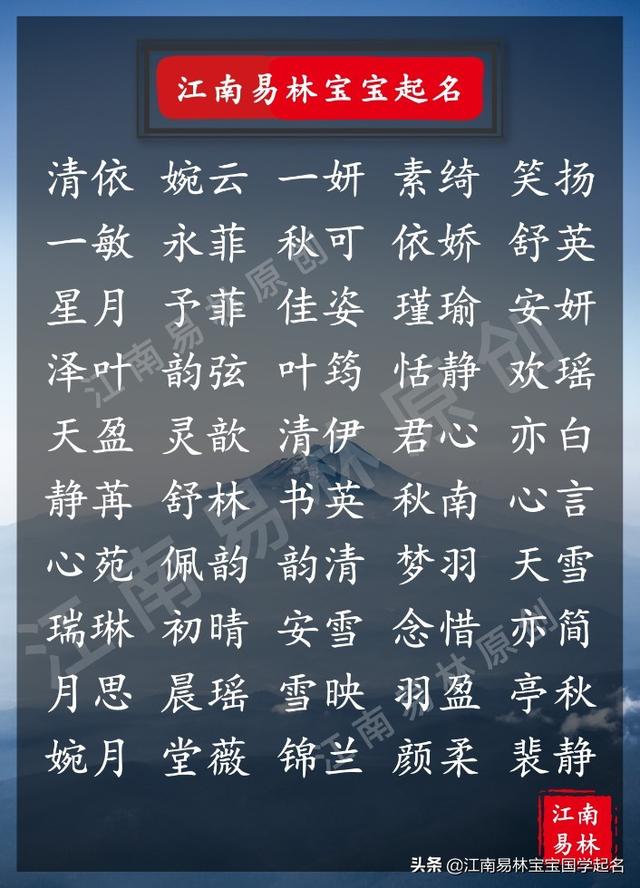 江南易林宝宝起名
清依 婉云 一妍 素绮 笑扬
一敏 永菲 秋可 依娇 舒英
星月 予菲 佳姿 瑾瑜 安妍
泽叶 韵弦 叶筠 恬静 欢瑶
天盈 灵歆 清伊 君心 亦白
静苒 舒林 书英 秋南 心言
心苑 佩韵 韵清 梦羽 天雪
瑞琳 初晴 安雪 念惜 亦简
月思 晨瑶 雪映 羽盈 亭秋
婉月 堂薇 锦兰 颜柔 裴静
江南易林原创
江南易林原创
江南易林原创
江南
易林
头条 @江南易林宝宝国学起名